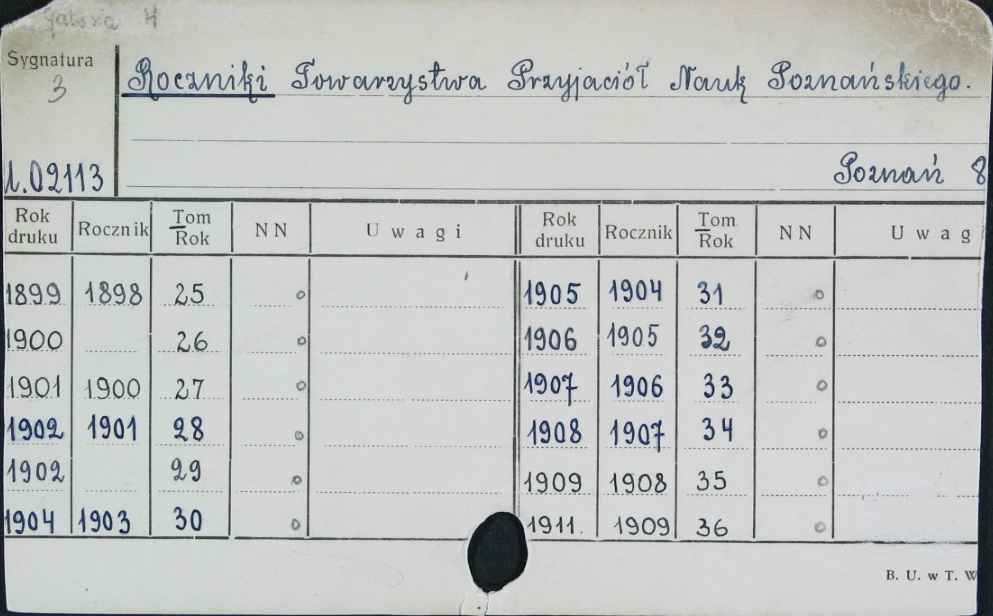 Sygnatura
3
Roczniki Towarzystwa Przyjaciół Nauk Poznańskiego.
1.02113
Poznań 8
Rok druku Rocznik Tom Rok NN Uwagi Rok druku Rocznik Tom Rok NN Uwag
1899 1898 25 o 1905 1904 31 o
1900 26 o 1906 1905 32 o
1901 1900 27 o 1907 1906 33 o
1902 1901 28 o 1908 1907 34 o
1902 29 o 1909 1908 35 o
1904 1903 30 o 1911. 1909 36 o
B. U. w T. W